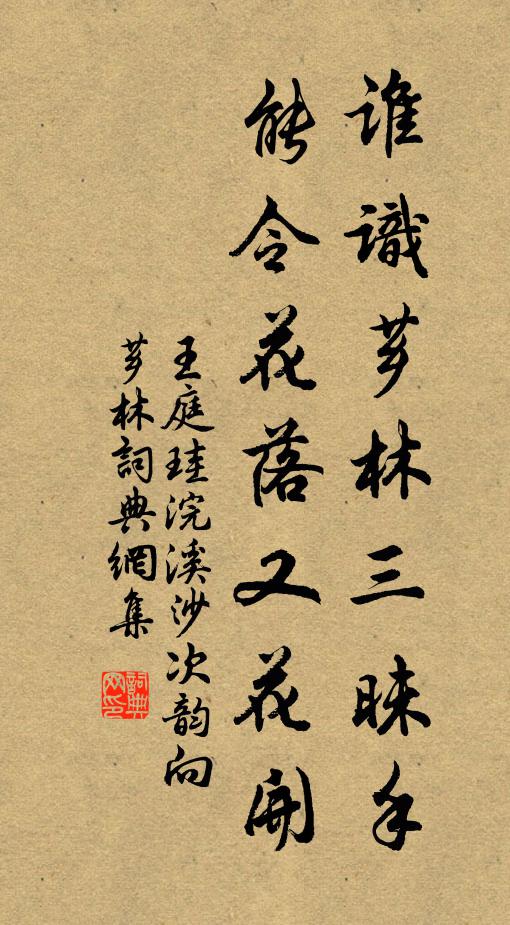 誰識芗林三昧手
能令花落又花開
王庭珪浣溪沙次韵向
芗林詞典網集
詞典
网印